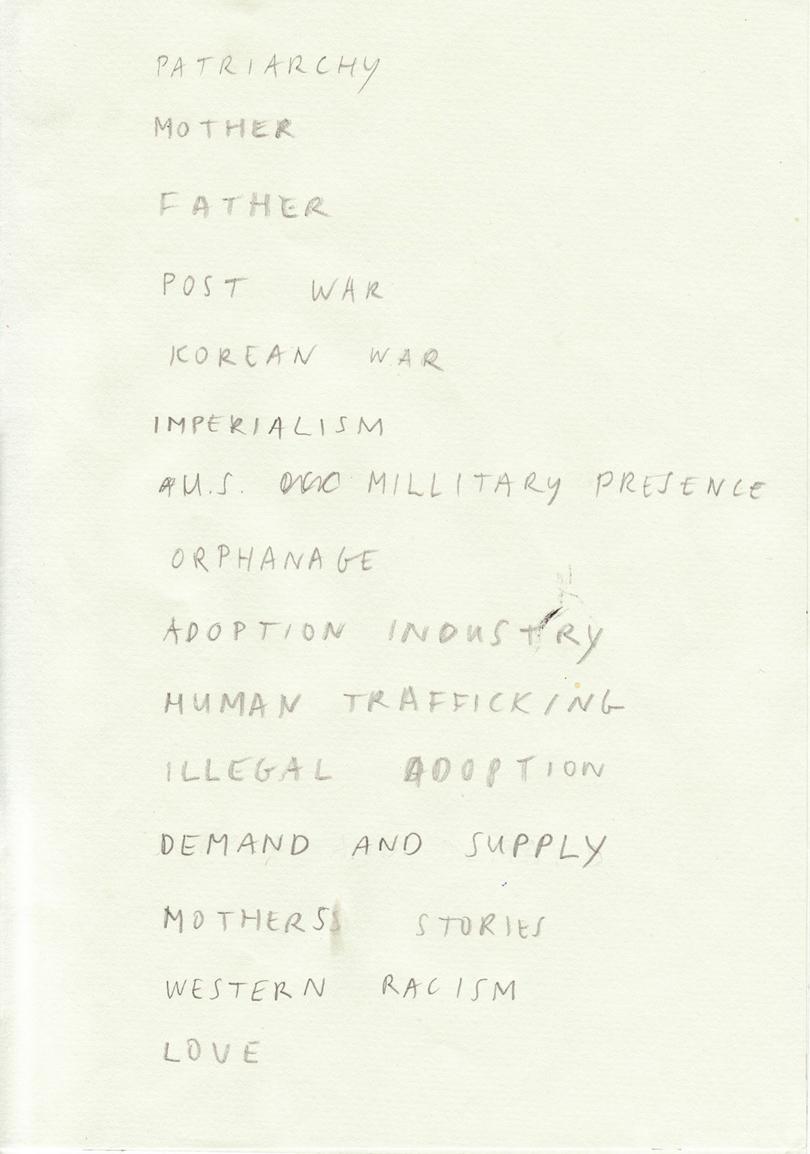 PATRIARCHY
MOTHER
FATHER
POST WAR
KOREAN WAR
IMPERIALISM
U.S. MILLITARY PRESENCE
ORPHANAGE
ADOPTION INDUSTRY
HUMAN TRAFFICKING
ILLEGAL ADOPTION
DEMAND AND SUPPLY
MOTHERS STORIES
WESTERN RACISM
LOVE